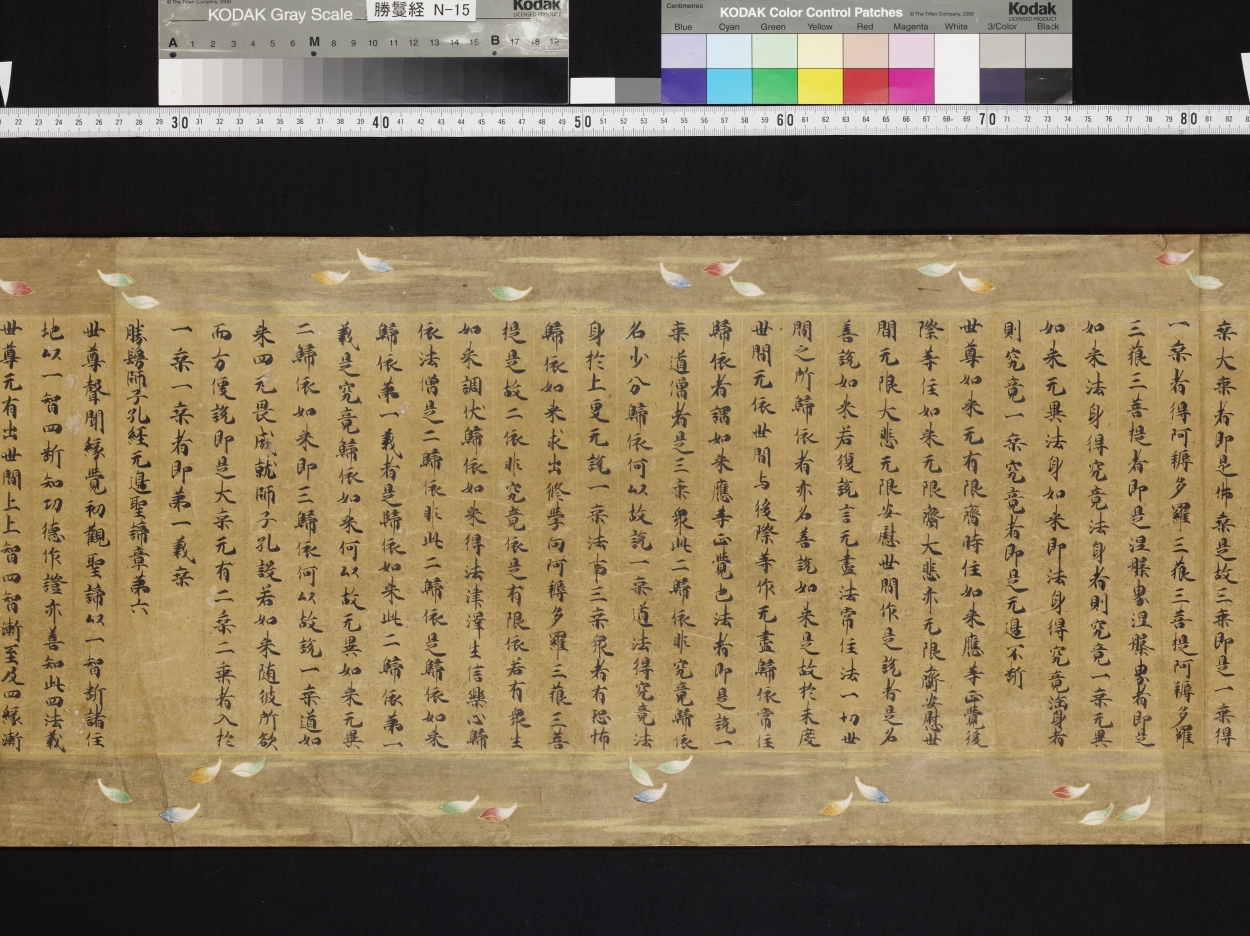 © The Tiffen Company, 2000
KODAK Gray Scale
Kodak
LICENSED PRODUCT
勝鬘経 N-15
A 1 2 3 4 5 6 M 8 9 10 11 12 13 14 15 B 17 18 19
Centimetres
KODAK Color Control Patches
© The Tiffen Company, 2000
Kodak
LICENSED PRODUCT
Blue Cyan Green Yellow Red Magenta White 3/Color Black
22 23 24 25 26 27 28 29 30 31 32 33 34 35 36 37 38 39 40 41 42 43 44 45 46 47 48 49 50 51 52 53 54 55 56 57 58 59 60 61 62 63 64 65 66 67 68 69 70 71 72 73 74 75 76 77 78 79 80 81 82
乘大乘者即是佛乘是故三乘即是一乘得
一乘者得阿耨多羅三藐三菩提阿耨多羅
三藐三菩提者即是涅槃界涅槃界者即是
如来法身得究竟法身者則究竟一乘无異
如来无異法身如来即法身得究竟法身者
則究竟一乘究竟者即是无邊不断
世尊如来无有限齊時住如来應等正覺後
際等住如来无限齊大悲亦无限齊安慰世
間无限大悲无限安慰世間作是說者是名
善說如来若復說言无盡法常住法一切世
間之所歸依者亦名善說如来是故於未度
世間无依世間与後際等作无盡歸依常住
歸依者謂如来應等正覺也法者即是說一
乘道僧者是三乘衆此二歸依非究竟歸依
名少分歸依何以故說一乘道法得究竟法
身於上更无說一乘法事三乘衆者有恐怖
歸依如来求出修學向阿耨多羅三藐三菩
提是故二依非究竟依是有限依若有衆生
如来調伏歸依如来得法津澤生信樂心歸
依法僧是二歸依非此二歸依是歸依如来
歸依第一義者是歸依如来此二歸依第一
義是究竟歸依如来何以故无異如来无異
二歸依如来即三歸依何以故說一乘道如
来四无畏成就師子孔說若如来随彼所欲
而方便說即是大乘无有二乘二乘者入於
一乘一乘者即第一義乘
勝鬘師子孔經无邊聖諦章第六
世尊聲聞縁覺初觀聖諦以一智断諸住
地以一智四断知功德作證亦善知此四法義
世尊无有出世間上上智四智漸至及四縁漸